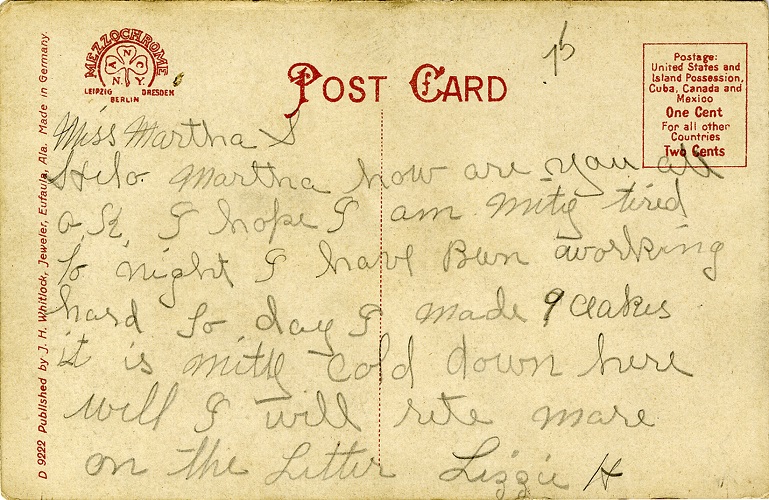 MEZZOCHROME
A N C
N.Y.
LEIPZIG DRESDEN
BERLIN
POST CARD
15
Postage:
United States and
Island Possession,
Cuba, Canada and
Mexico
One Cent
For all other
Countries
Two Cents
D 9222 Published by J. H. Whitlock, Jeweler, Eufaula, Ala. Made in Germany.
Miss Martha S
Helo Martha how are you all
O, K, I hope I am mity tired
to night I have Bun working
hard to day I made 9 Cakes
it is mitty cold down here
will I will rite more
on the Letter Lizzie H